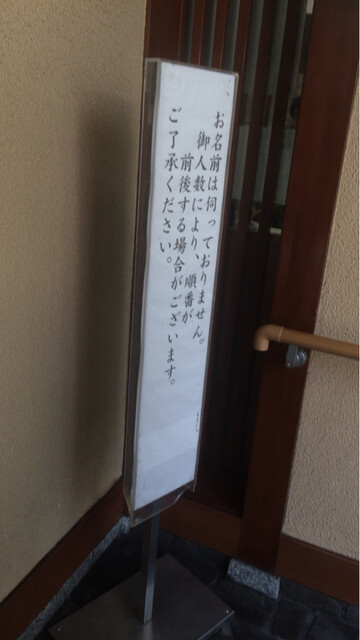 お名前は伺っておりません。
御人数により、順番が
前後する場合がございます。
ご了承ください。